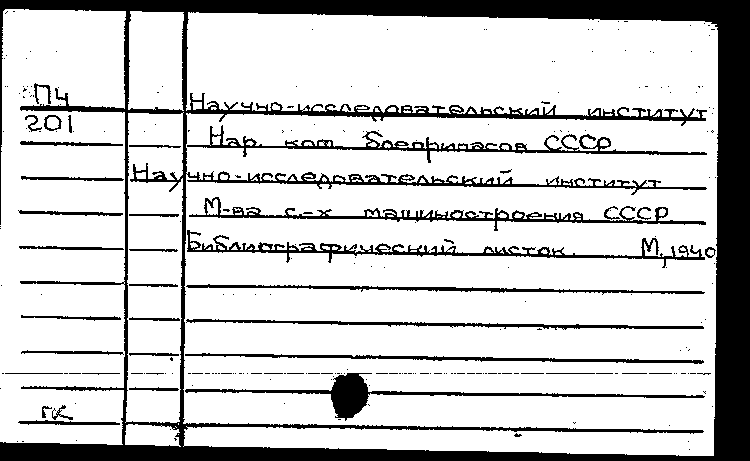 Пч
201
Научно-исследовательский институт
Нар. ком. боеприпасов СССР
Научно-исследовательский институт
М-ва с.-х машиностроения СССР
Библиографический листок. М., 1940
ГК